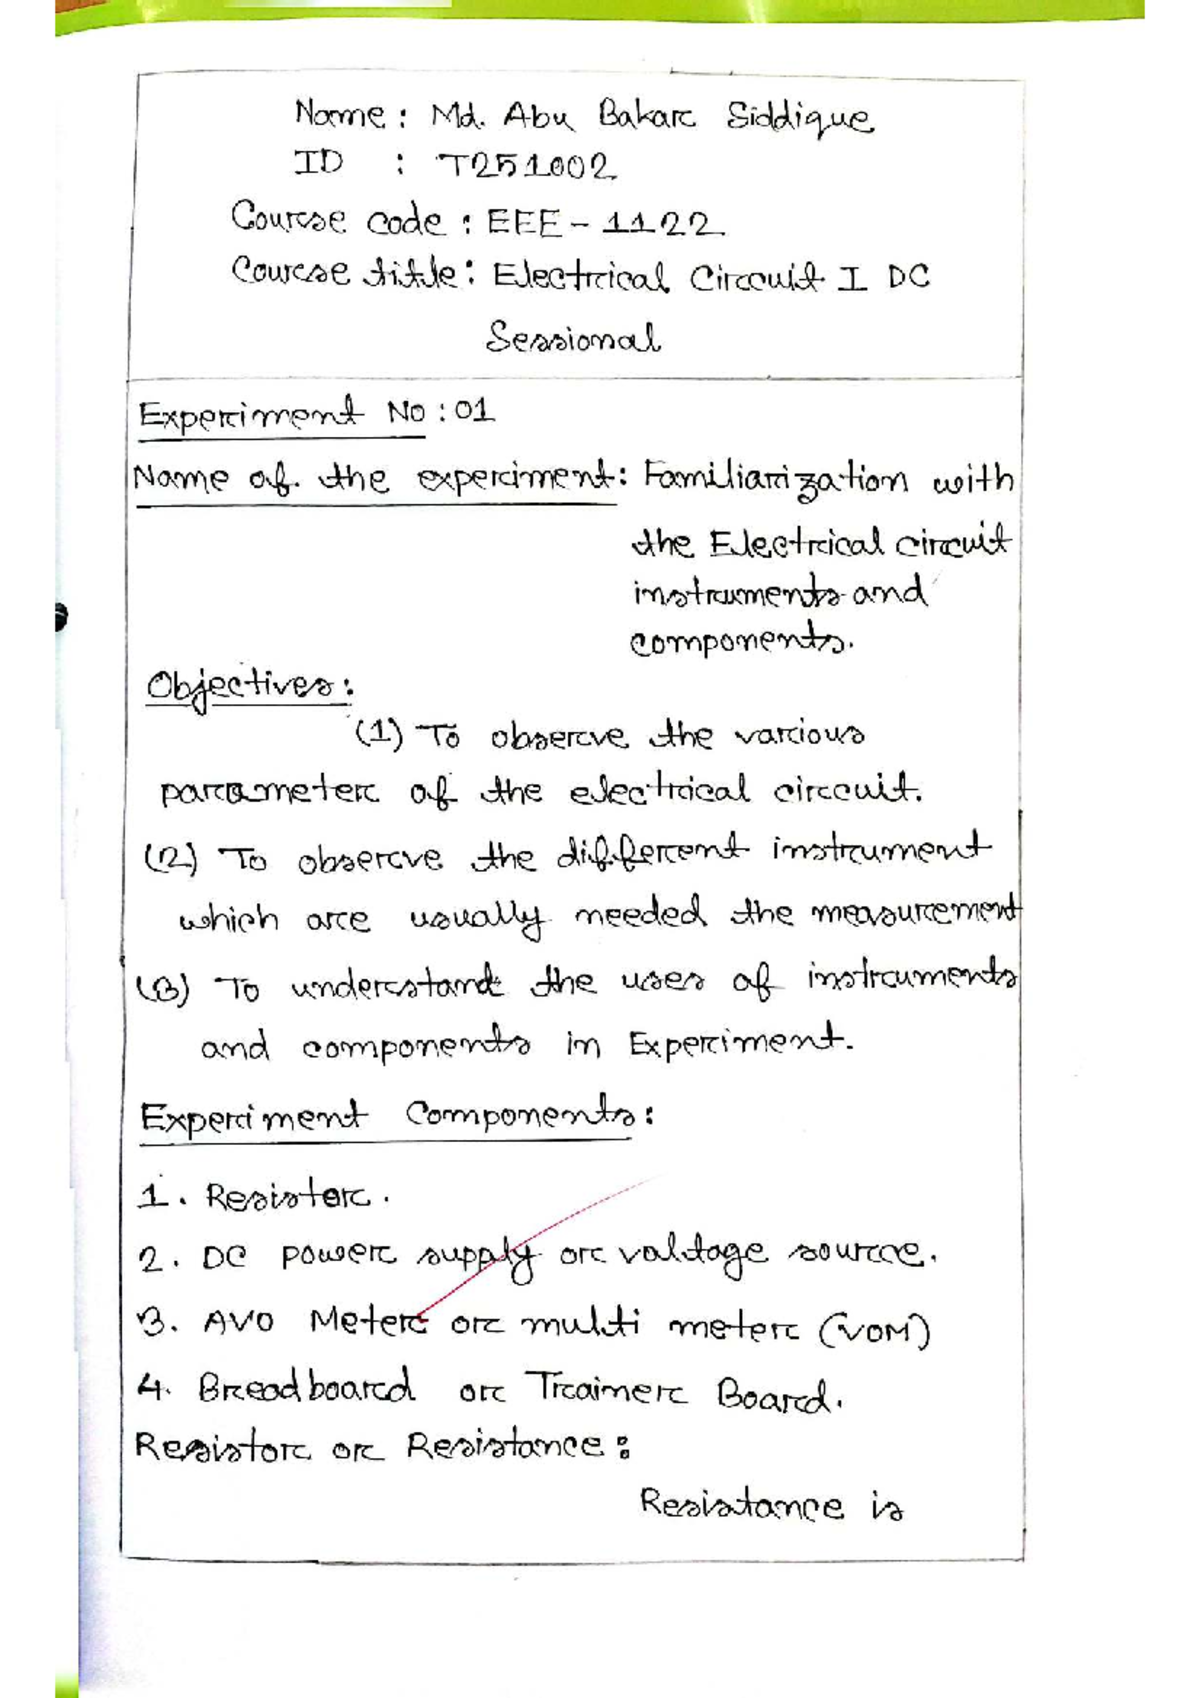 Name : Md. Abu Bakar Siddique
ID : T251002
Course code : EEE - 1122
Course title : Electrical Circuit I DC
Sessional
Experiment No : 01
Name of the experiment : Familiarization with
the Electrical circuit
instruments and
components.
Objectives :
(1) To observe the various
parameter of the electrical circuit.
(2) To observe the different instrument
which are usually needed the measurement
(3) To understand the uses of instruments
and components in Experiment.
Experiment Components :
1. Resister.
2. DC power supply or valtage source.
3. AVO Meter or multi meter (VOM)
4. Breadboard or Trainer Board.
Resistor or Resistance :
Resistance is